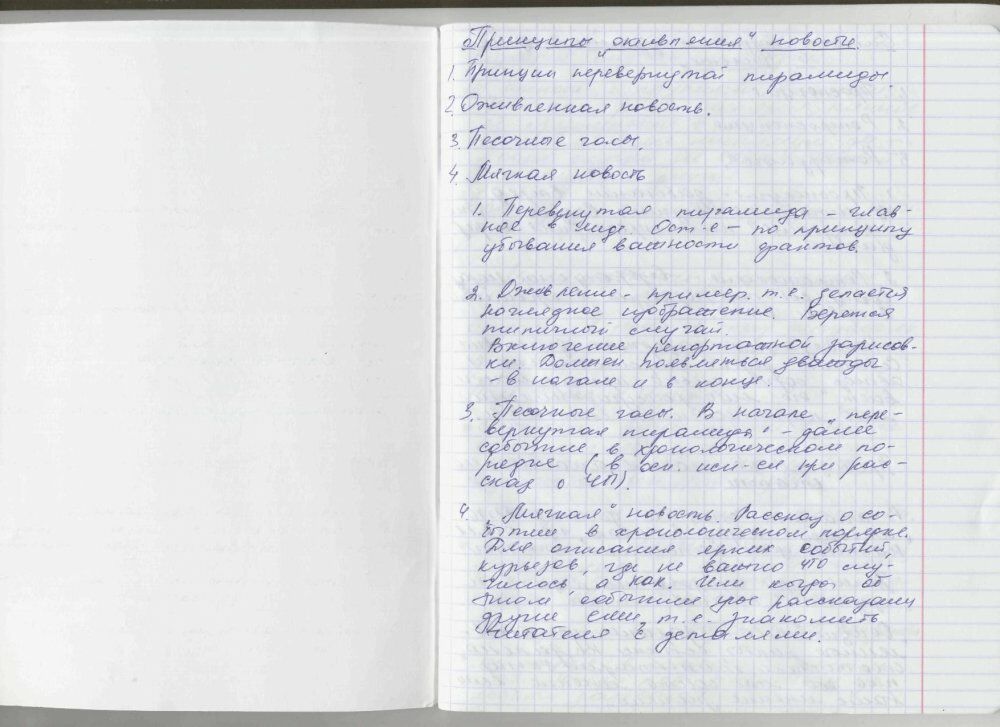 Принципы „оживления" новости.
1. Принцип перевернутой пирамиды.
2. Оживленная новость.
3. Песочные часы.
4. Мягкая новость
1. Перевернутая пирамида – глав-
ное в лиде. Ост-е – по принципу
убывания важности фактов.
2. Оживление – пример. т.е. делается
наглядное изображение. Берется
типичный случай.
Включение репортажной зарисов-
ки. Должен появляться дважды
– в начале и в конце.
3. Песочные часы. В начале „пере-
вернутая пирамида" – далее
событие в хронологическом по-
рядке (в осн. исп-ся при рас-
сказ о ЧП).
4. „Мягкая" новость. Рассказ о со-
бытии в хронологическом порядке.
Для описания ярких событий,
курьезов, где не важно что слу-
чилось, а как. Или когда об
этом событии уже рассказали
другие сми, т.е. знакомить
читателя с деталями.